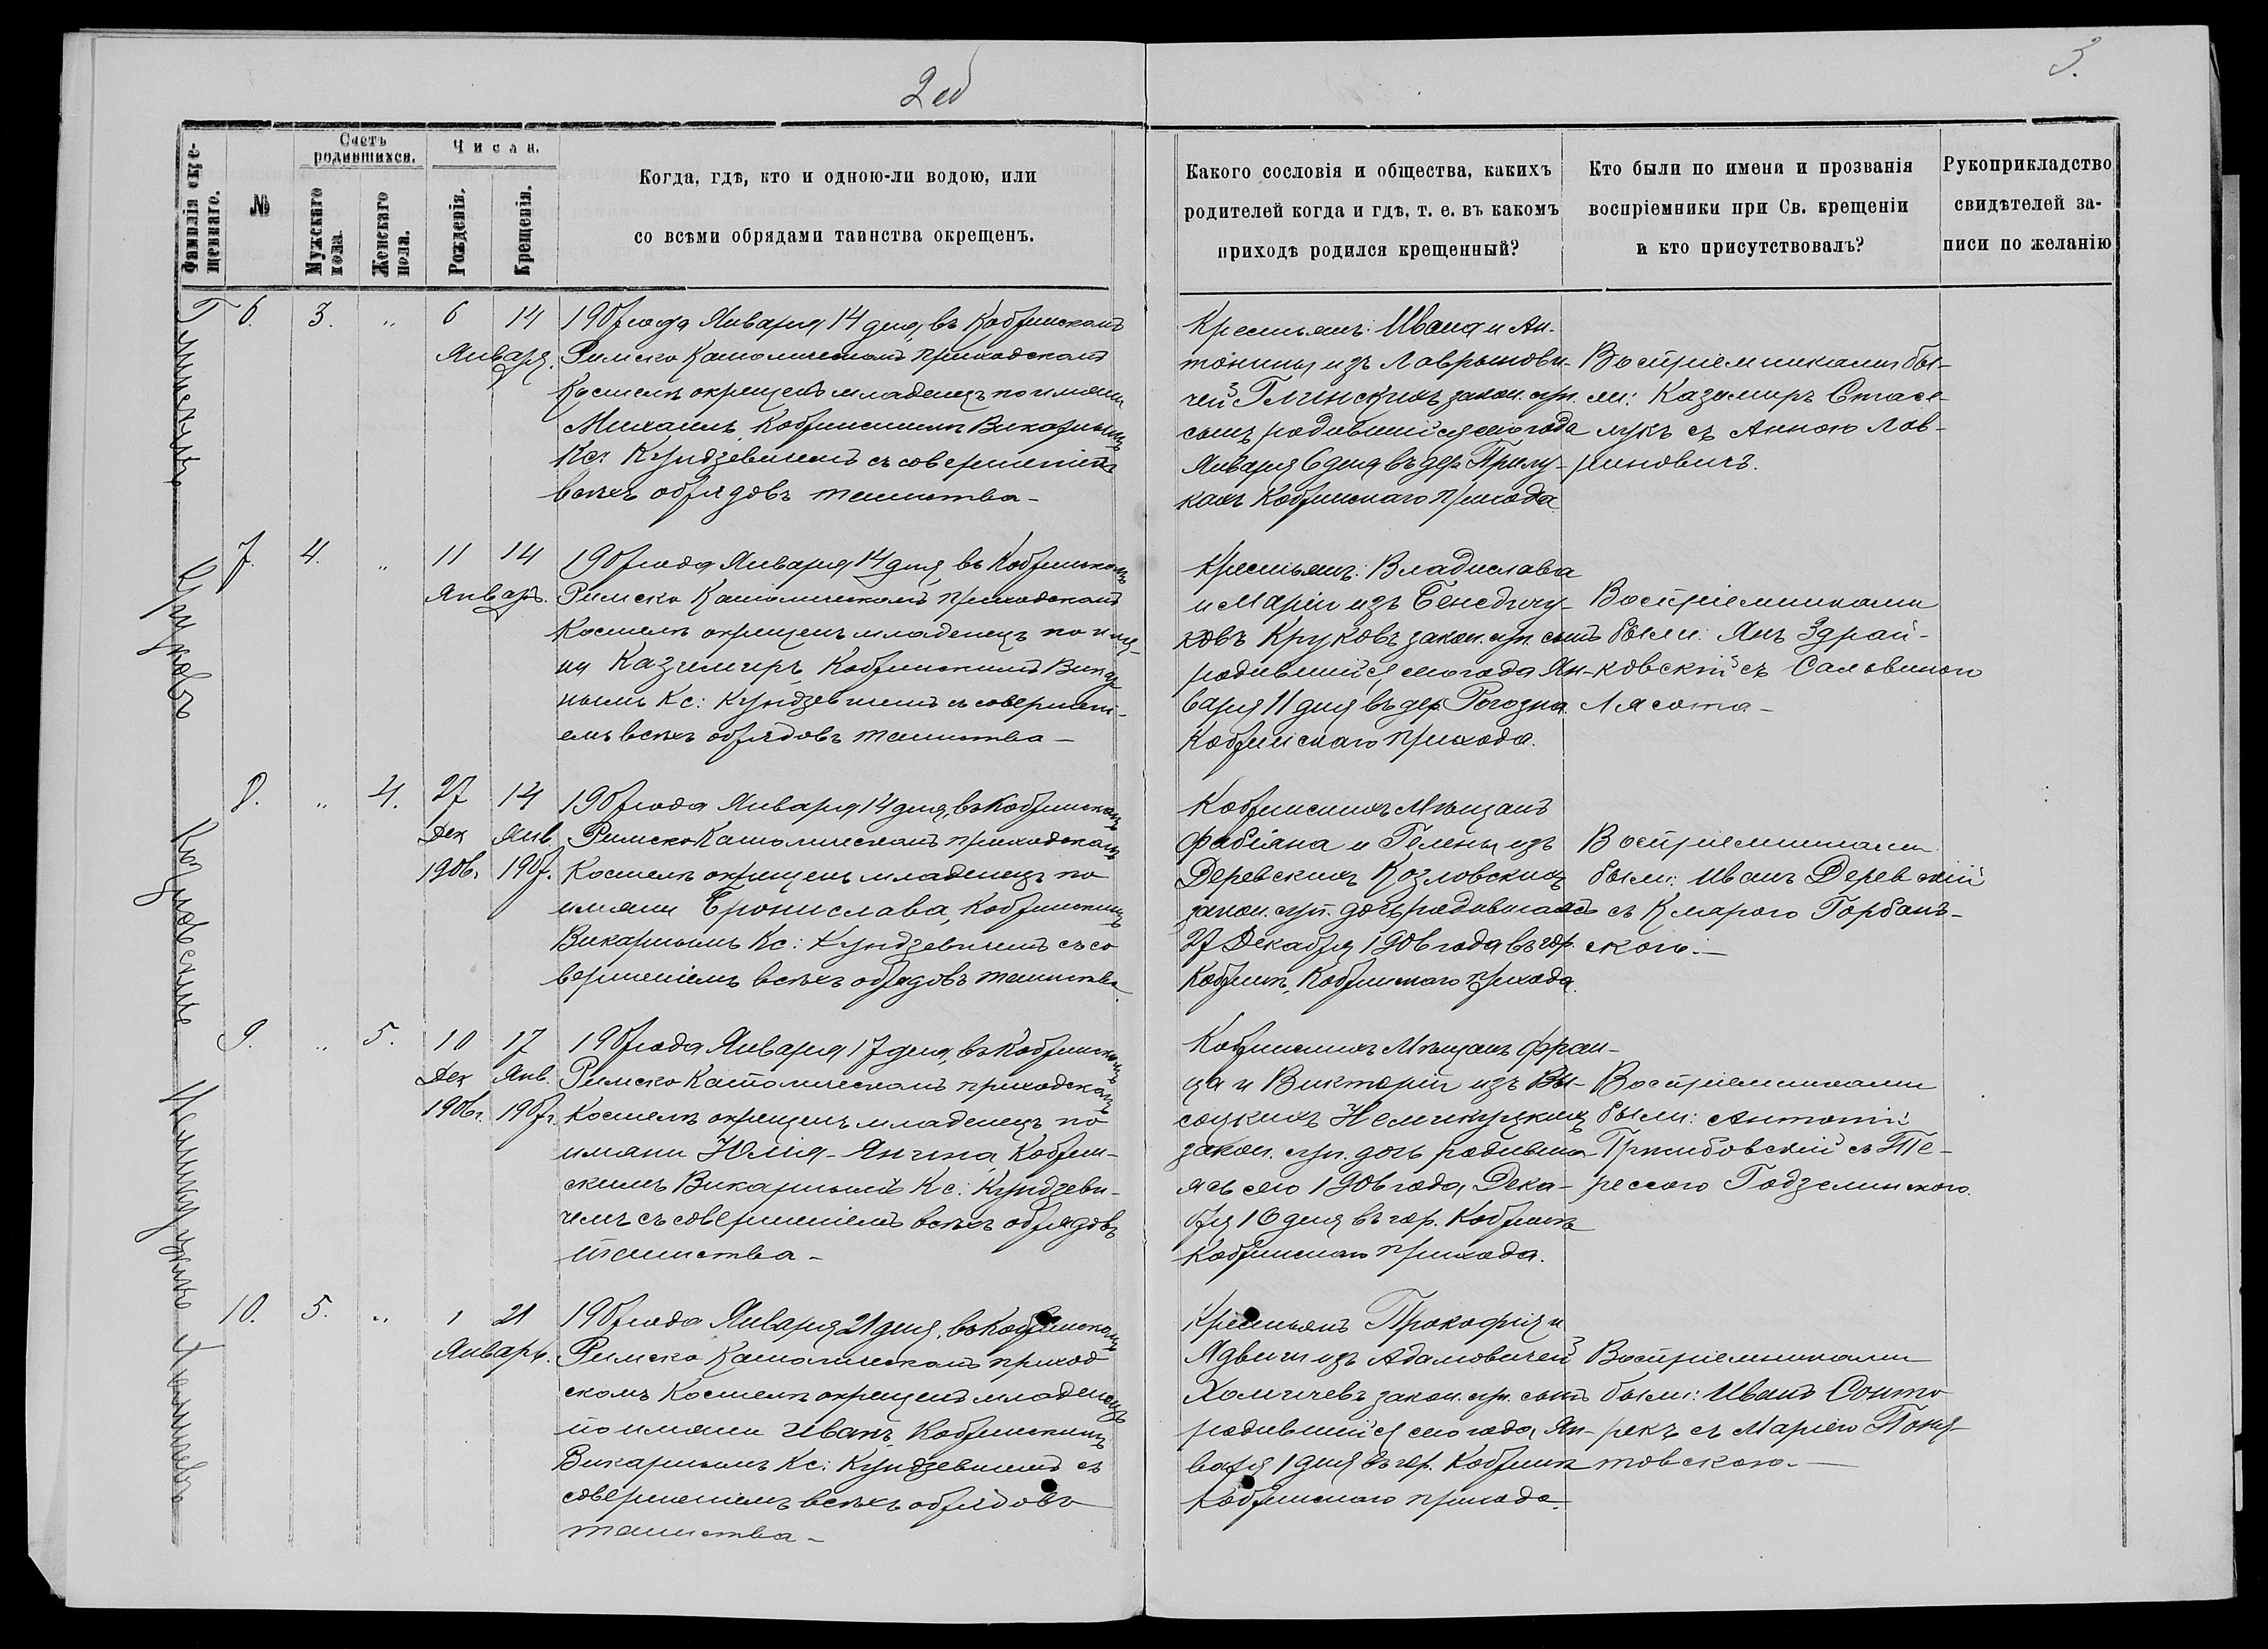 2 об
3.
Фамилія кре-
щеннаго.
№
Счетъ
родившихся.
Мужскаго
пола.
Женскаго
пола.
Числа.
Рожденія.
Крещенія.
Когда, гдѣ, кто и одною-ли водою, или
со всѣми обрядами таинства окрещенъ.
Какого сословія и общества, какихъ
родителей когда и гдѣ, т. е. въ какомъ
приходѣ родился крещенный?
Кто были по имени и прозванія
воспріемники при Св. крещеніи
и кто присутствовалъ?
Рукоприкладство
свидѣтелей за-
писи по желанію
Глинскихъ
6. 3. „ 6 14
Января.
1907 года Января 14 дня, въ Кобринскомъ
Римско Католическомъ приходскомъ
Костелѣ окрещенъ младенецъ по имени
Михаилъ, Кобринскимъ Викарнымъ
Кс: Кундзевичемъ съ совершеніемъ
всѣхъ обрядовъ таинства –
Крестьянъ: Ивана и Ан-
тонины изъ Лаврынови-
чей Глинскихъ закон. суп.
сынъ родившійся сего года
Января 6 дня въ дер. Прилу-
кахъ Кобринскаго прихода
Воспріемниками бы-
ли: Казимиръ Стасе-
лукъ съ Анною Лав-
риновичъ.
Круковъ
7. 4. „ 11 14
Январь.
1907 года Января 14 дня, въ Кобринскомъ
Римско Католическомъ приходскомъ
Костелѣ окрещенъ младенецъ по име-
ни Казимиръ, Кобринскимъ Викар
нымъ Кс: Кундзевичемъ съ совершені-
емъ всѣхъ обрядовъ таинства –
Крестьянъ: Владислава
и Маріи изъ Бенедичу-
ковъ Круковъ закон. суп. сынъ
родившійся сего года Ян-
варя 11 дня въ дер. Рогозна
Кобринскаго прихода.
Воспріемниками
были: Янъ Здрай-
ковскій съ Сальвиною
Лясота –
Козловскихъ
8. „ 4. 27 14
Дек Янв.
1906. 1907.
1907 года Января 14 дня, въ Кобринскомъ
Римско Католическомъ приходскомъ
Костелѣ окрещенъ младенецъ по
имени Бронислава, Кобринскимъ
Викарнымъ Кс: Кундзевичемъ съ со
вершеніемъ всѣхъ обрядовъ таинства
Кобринскихъ Мѣщанъ
Фабіана и Гелены изъ
Деревскихъ Козловскихъ
закон. суп. дочь родившаяся
27 Декабря 1906 года въ гор.
Кобринѣ, Кобринскаго прихода.
Воспріемниками
были: Иванъ Деревскій
съ Кларою Горбань-
скою. –
9. „ 5. 10 17
Дек Янв.
1906г. 1907г.
1907 года Января 17 дня, въ Кобринскомъ
Римско Католическомъ приходскомъ
Костелѣ окрещенъ младенецъ по
имени Юлія-Янина, Кобрин-
скимъ Викарнымъ Кс: Кундзеви-
чемъ съ совершеніемъ всѣхъ обрядовъ
таинства –
Кобринскихъ Мѣщанъ Фран-
ца и Викторіи изъ Вы-
соцкихъ
закон. суп. дочь родивша-
ясь сего 1906 года, Дека-
бря 10 дня въ гор. Кобринѣ
Кобринскаго прихода.
Воспріемниками
были: Антоній
Гржибовскій съ Те-
рессою
Хомичевъ
10. 5. „ 1 21
Январь.
1907 года Января 21 дня, въ Кобринскомъ
Римско Католическомъ приход
скомъ Костелѣ окрещенъ младенецъ
по имени Иванъ, Кобринскимъ
Викарнымъ Кс: Кундзевичемъ съ
совершеніемъ всѣхъ обрядовъ
таинства –
Крестьянъ Прокофія и
Ядвиги изъ Адамовичей
Хомичевъ закон. суп. сынъ
родившійся сего года, Ян-
варя 1 дня въ гор. Кобринѣ
Кобринскаго прихода.
Воспріемниками
были: Иванъ Сонто
рекъ съ Маріею Поня-
товскою. –